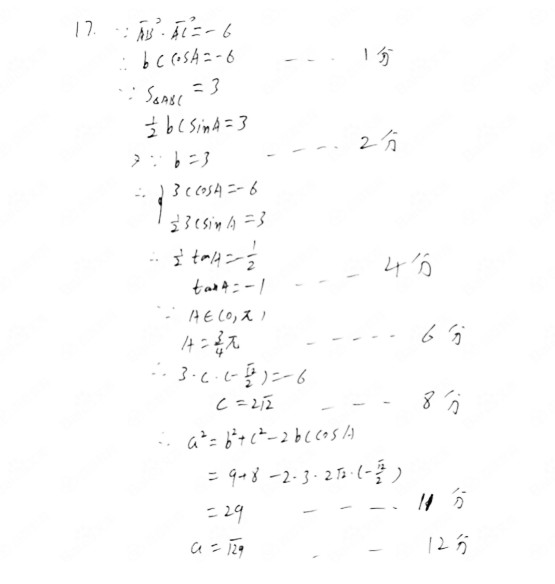 17. ∵ AB→·AC→=-6
∴ bccosA=-6 --- 1分
∵ S△ABC=3
1/2 bcsinA=3
又∵ b=3 ---- 2分
∴ { 3ccosA=-6
1/2 3csinA=3
∴ 1/2 tanA=-1/2
tanA=-1 --- 4分
∵ A∈(0,π)
A=3/4π ----- 6分
∴ 3·c·(-√2/2)=-6
c=2√2 --- 8分
∴ a²=b²+c²-2bccosA
=9+8-2·3·2√2·(-√2/2)
=29 ---- 11分
a=√29 -- 12分